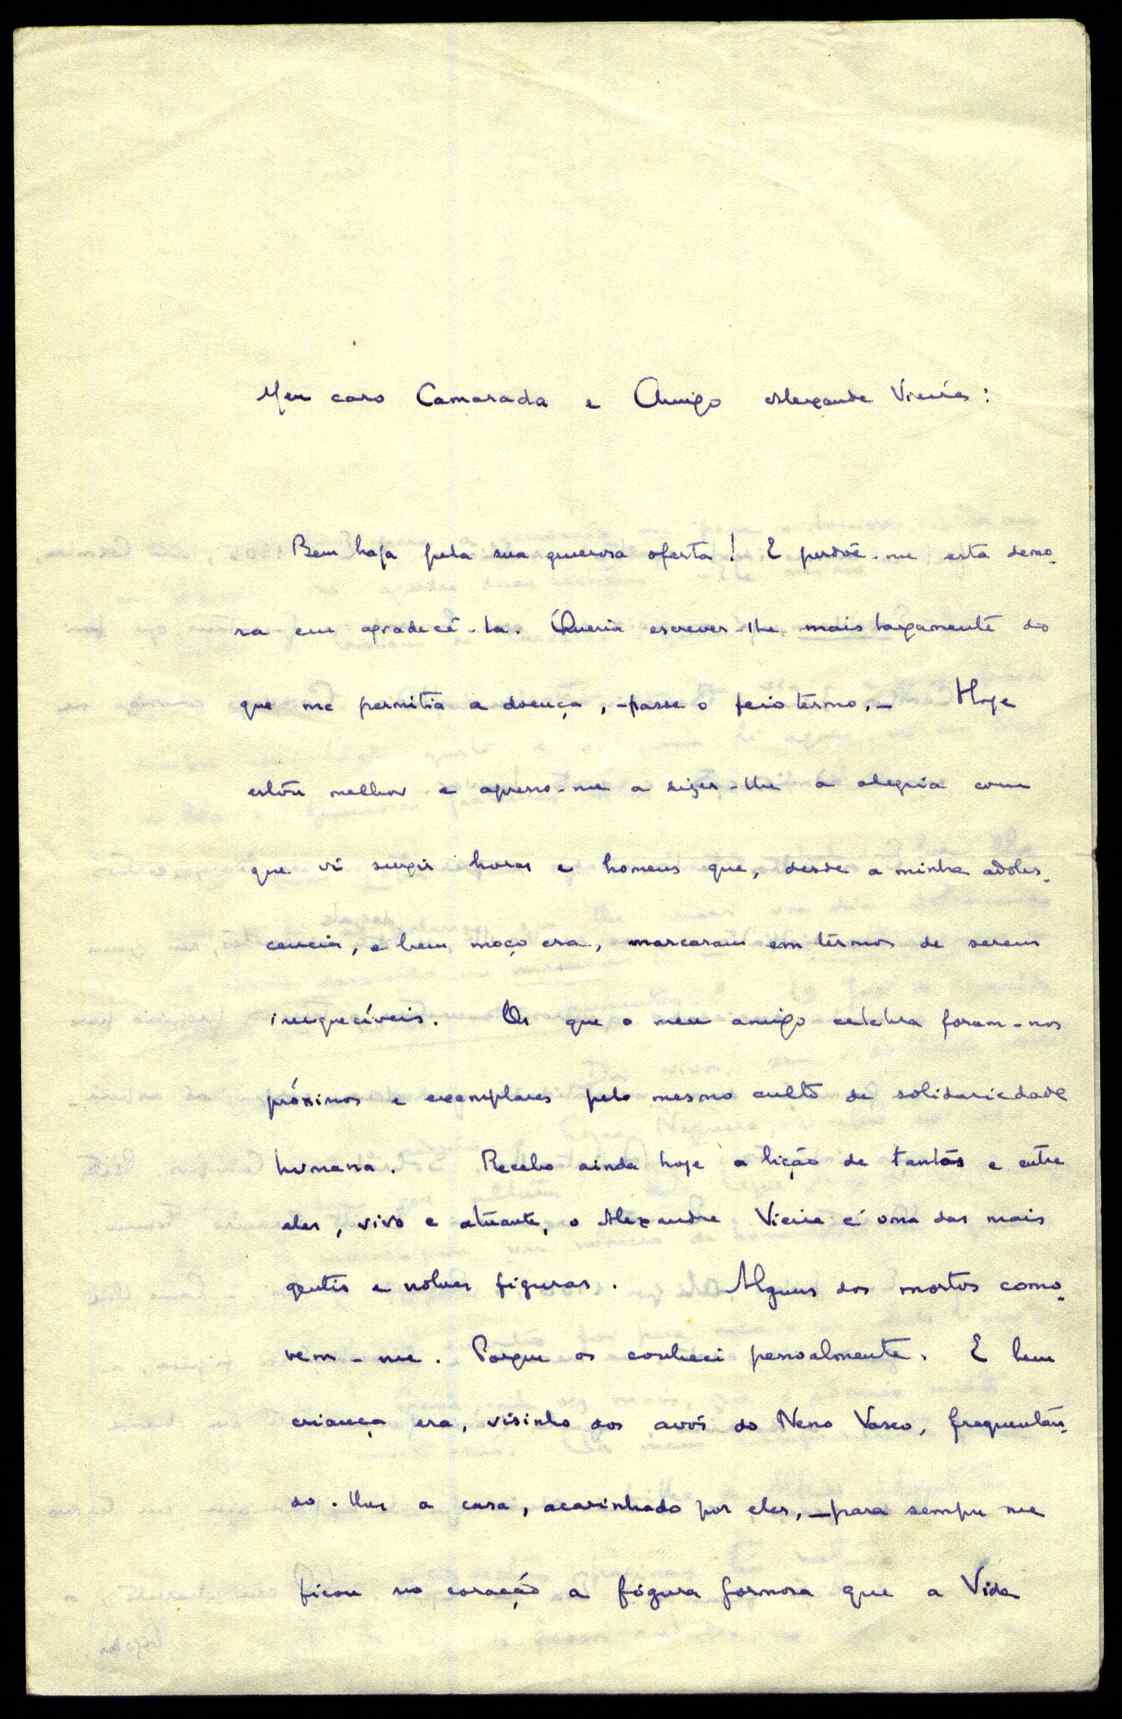 Meu caro Camarada e Amigo Alexandre Vieira:
Bem haja pela sua generosa oferta! E perdôe-me esta demo-
ra em agradecê-la. Queria escrever-lhe mais largamente do
que me permitia a doença, -passe o feio termo,- Hoje
estou melhor e apresso-me a dizer-lhe a alegria com
que vi surgir horas e homens que, desde a minha adoles-
cencia, e bem moço era, marcaram em termos de serem
inesqueciveis. Os que o meu amigo celebra foram-nos
próximos e exemplares pelo mesmo culto de solidariedade
humana. Recebo ainda hoje a lição de tantos e entre
eles, vivo e atuante, o Alexandre Vieira é uma das mais
gentis e nobres figuras. Alguns dos mortos como-
vem-me. Porque os conheci pessoalmente. E bem
criança era, visinho dos avós do Neno Vasco, frequentan-
do-lhes a casa, acarinhado por eles, -para sempre me
ficou no coração a figura formosa que a Vida